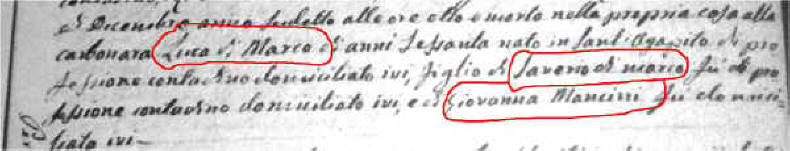 di Dicembre anno sudetto alle ore otto è morto nella propria casa alla
carbonara Luca di Marco di anni sessanta nato in Sant'Agapito di pro
fessione contadino domiciliato ivi, figlio di Saverio di Marco fù di pro
fessione contadino domiciliato ivi, e di Giovanna Mancini fù domici
liata ivi—